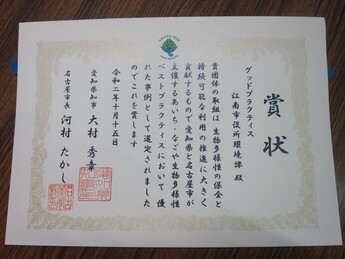 賞状
グッドプラクティス
江南市役所環境課 殿
貴団体の取組は生物多様性の保全と
持続可能な利用の推進に大きく
貢献するもので愛知県と名古屋市が
主催するあいち・なごや生物多様性
ベストプラクティスにおいて優
れた事例として選定されました
のでこれを賞します
令和二年十月十五日
愛知県知事 大村 秀章
名古屋市長 河村 たかし